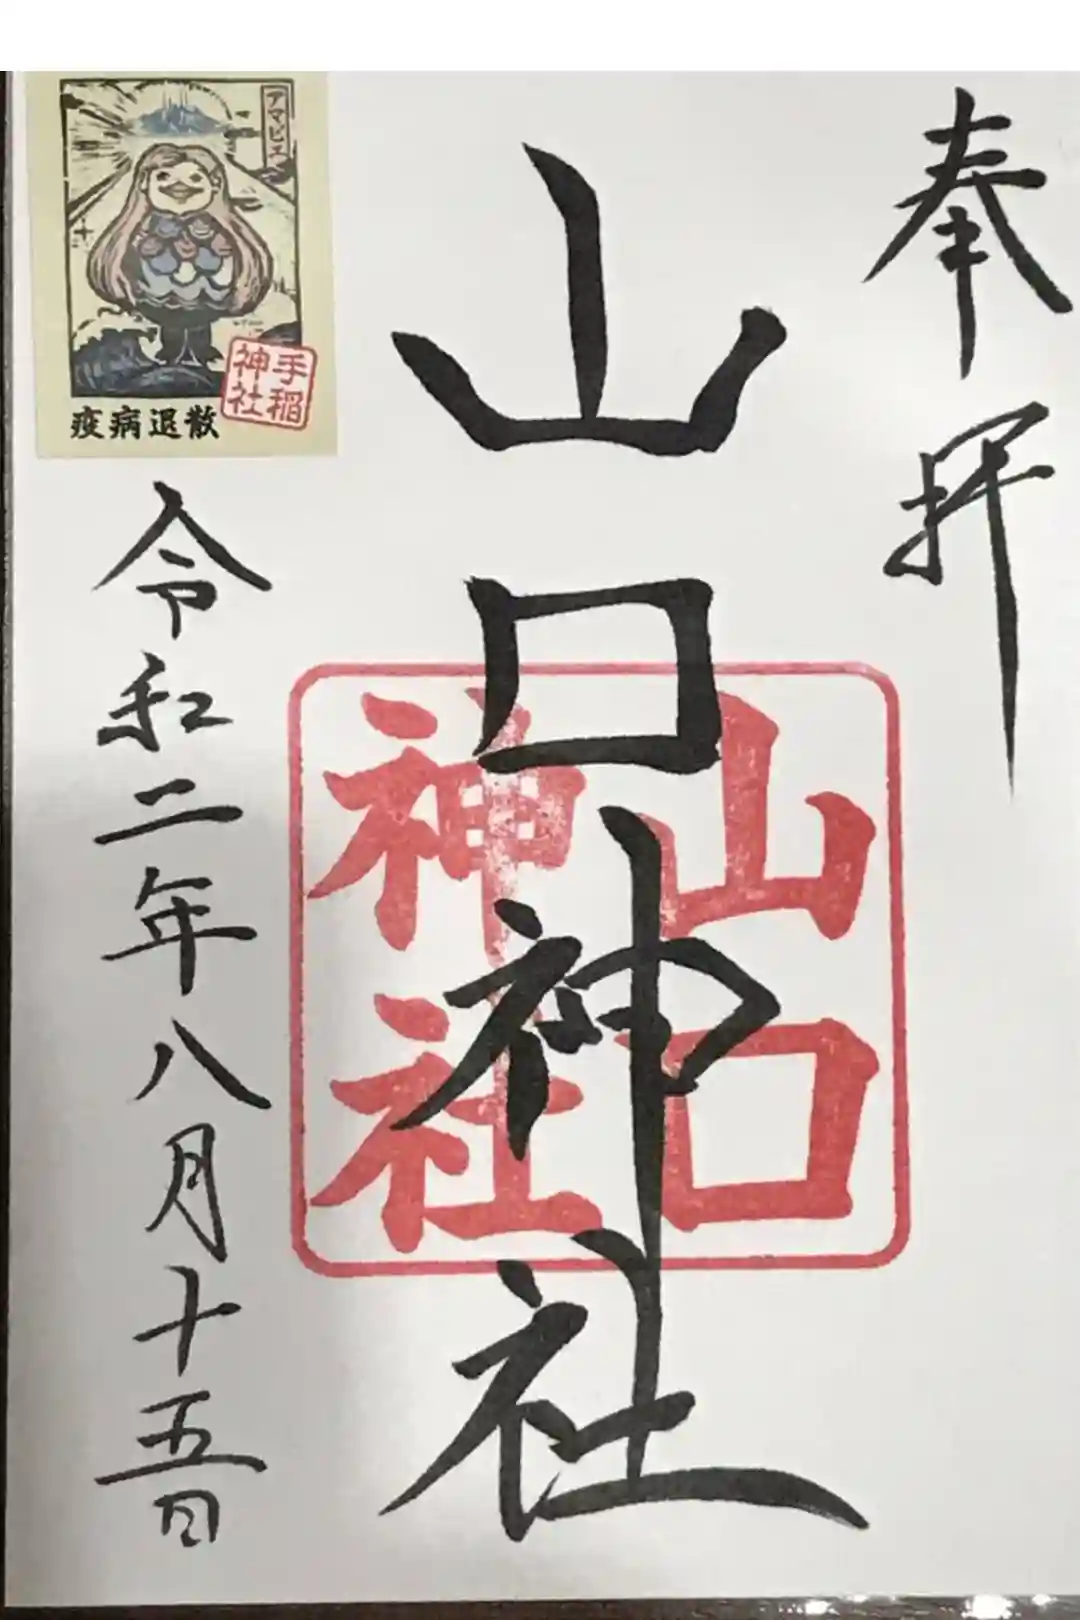 奉拝
山口神社
山口
神社
アマビエ
手稲
神社
疫病退散
令和二年八月十五日